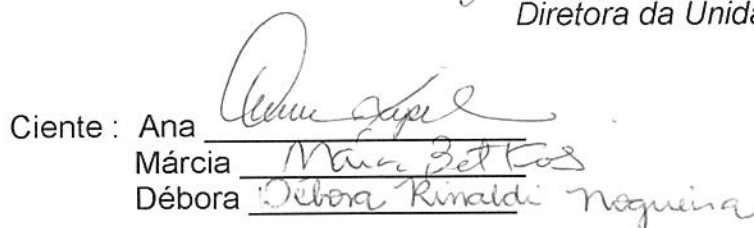 Diretora da Unida
Ciente : Ana
Márcia
Débora Débora Rinaldi Nogueira